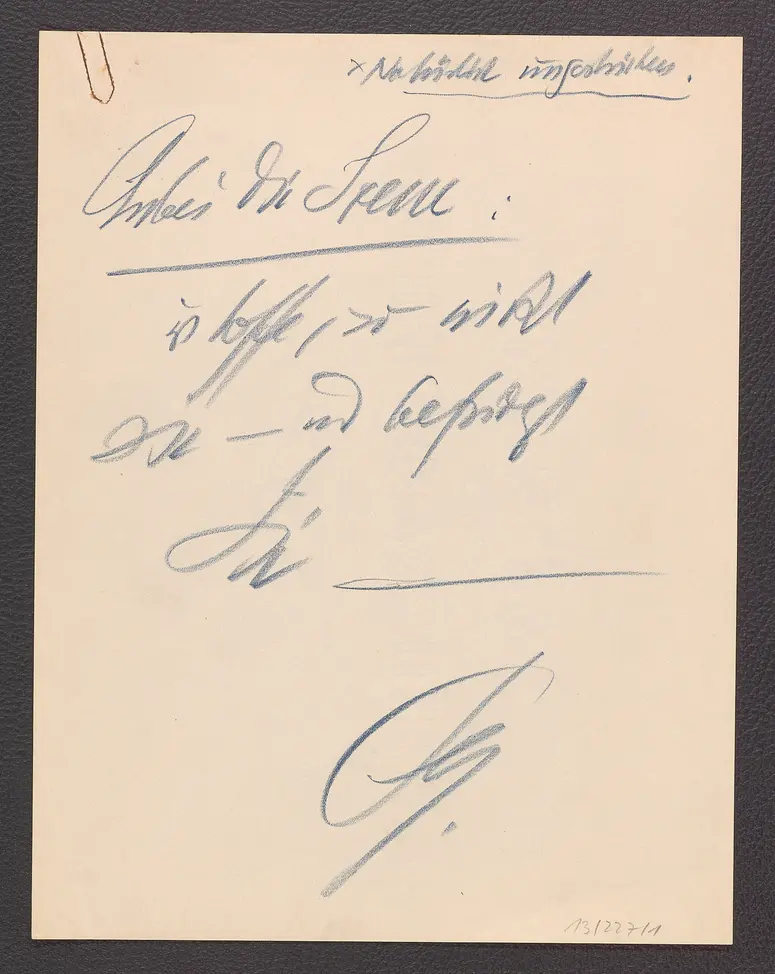 x Natürlich ungestrichen.
Anbei die Szene :
ich hoffe, so wirkt
sie – und befriedigt
Sie
13/227/1